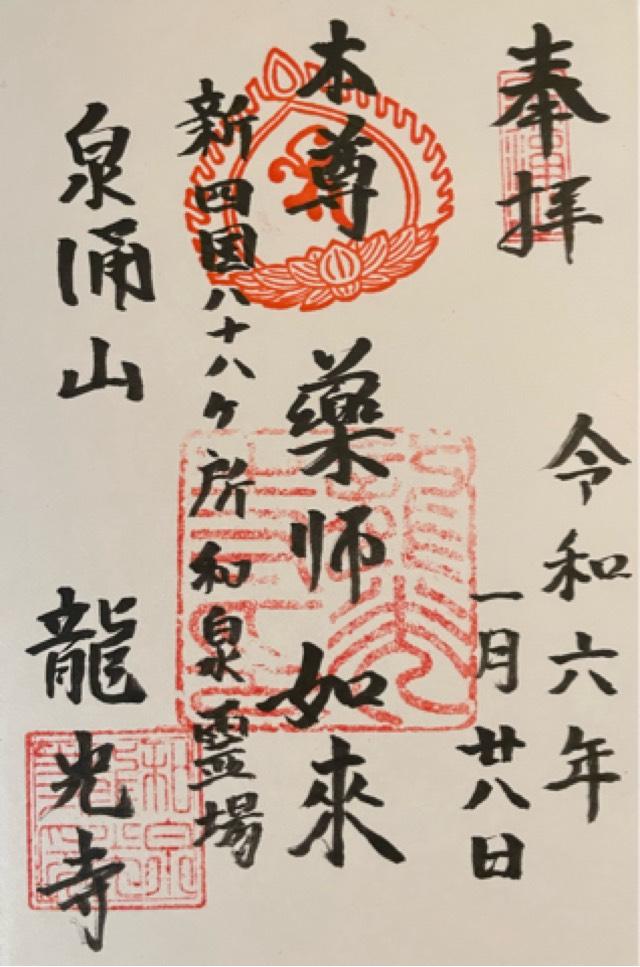 奉拝
令和六年
一月廿八日
本尊 薬師如來
新四国八十八ケ所和泉霊場
泉涌山 龍光寺